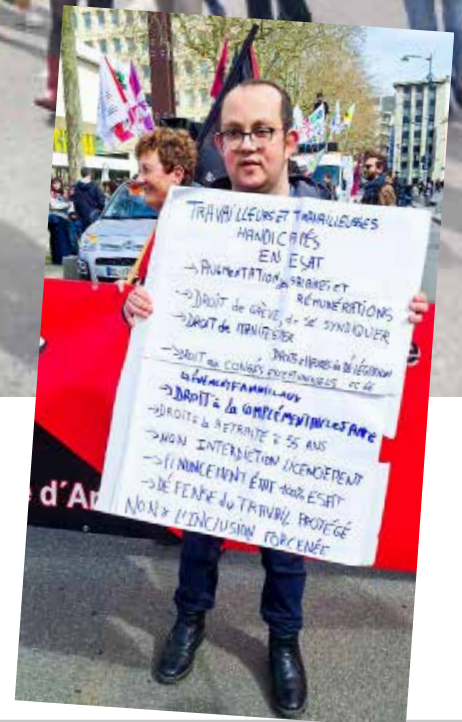 TRAVAILLEURS ET TRAVAILLEUSES
HANDICAPÉS
EN ESAT
→ AUGMENTATION des SALAIRES ET
RÉMUNÉRATIONS
→ DROIT de GRÈVE, de SE SYNDIQUER
→ DROIT de MANIFESTER
DROITS HEURES de DÉLÉGATION
→ DROIT aux CONGÉS EXCEPTIONNELS
ÉVÉNEMENT FAMILIAUX
→ DROIT à la COMPLÉMENTAIRE SANTÉ
→ DROIT à la RETRAITE à 55 ANS
→ NON INTERDICTION LICENCIEMENT
→ FINANCEMENT ÉTAT 100% ESAT
→ DÉFENSE du TRAVAIL PROTÉGÉ
NON à L'INCLUSION FORCENÉE
d'A